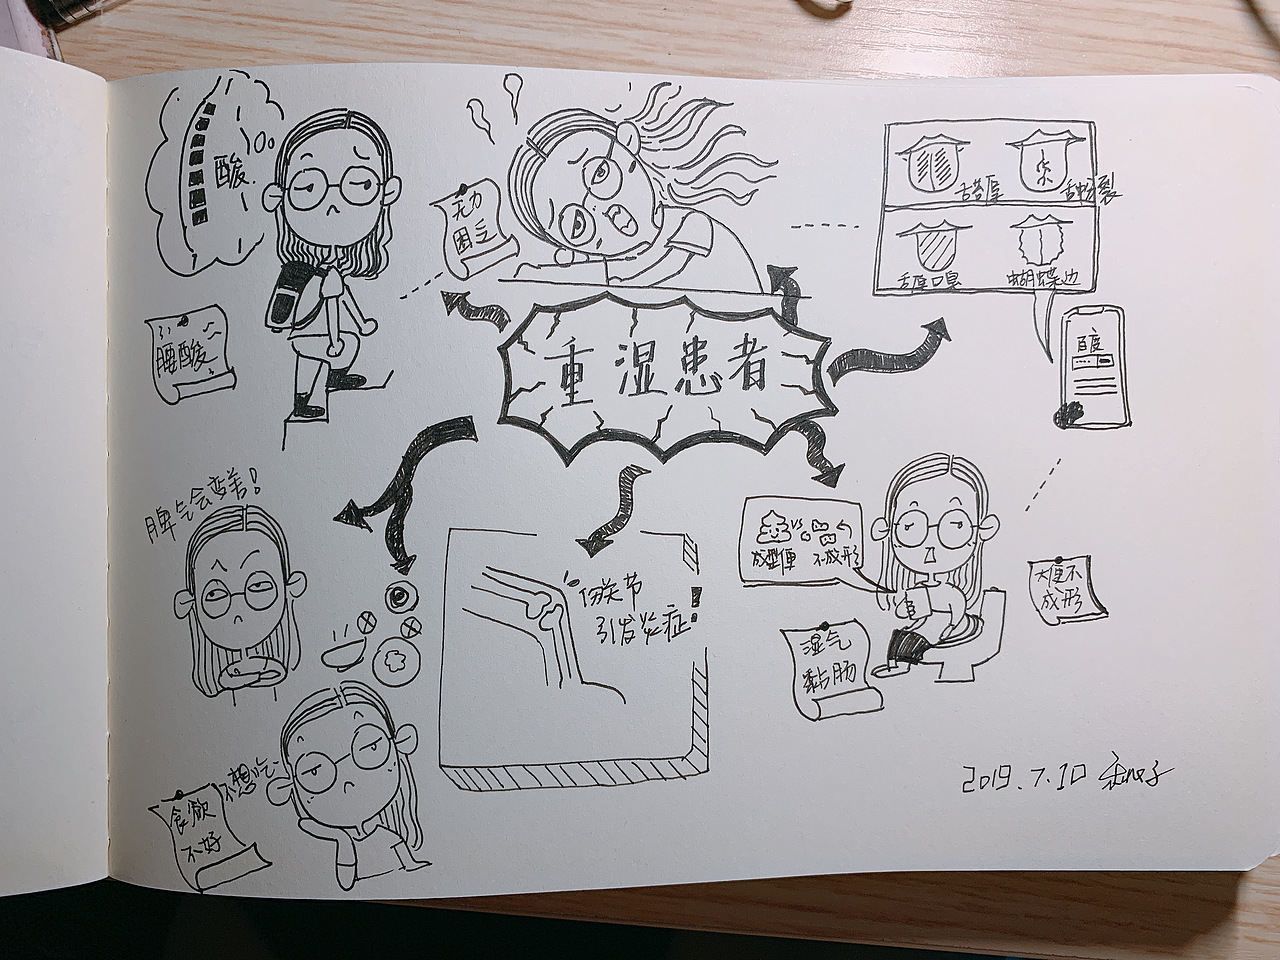 酸
腰酸
无力
困乏
重湿患者
舌苔厚
舌中裂
舌厚口臭
蝴蝶边
百度
脾气会变差!
伤关节
引发炎症!
成型便 VS 不成形
湿气
黏肠
大便不
成形
不想吃
食欲
不好
2019.7.10